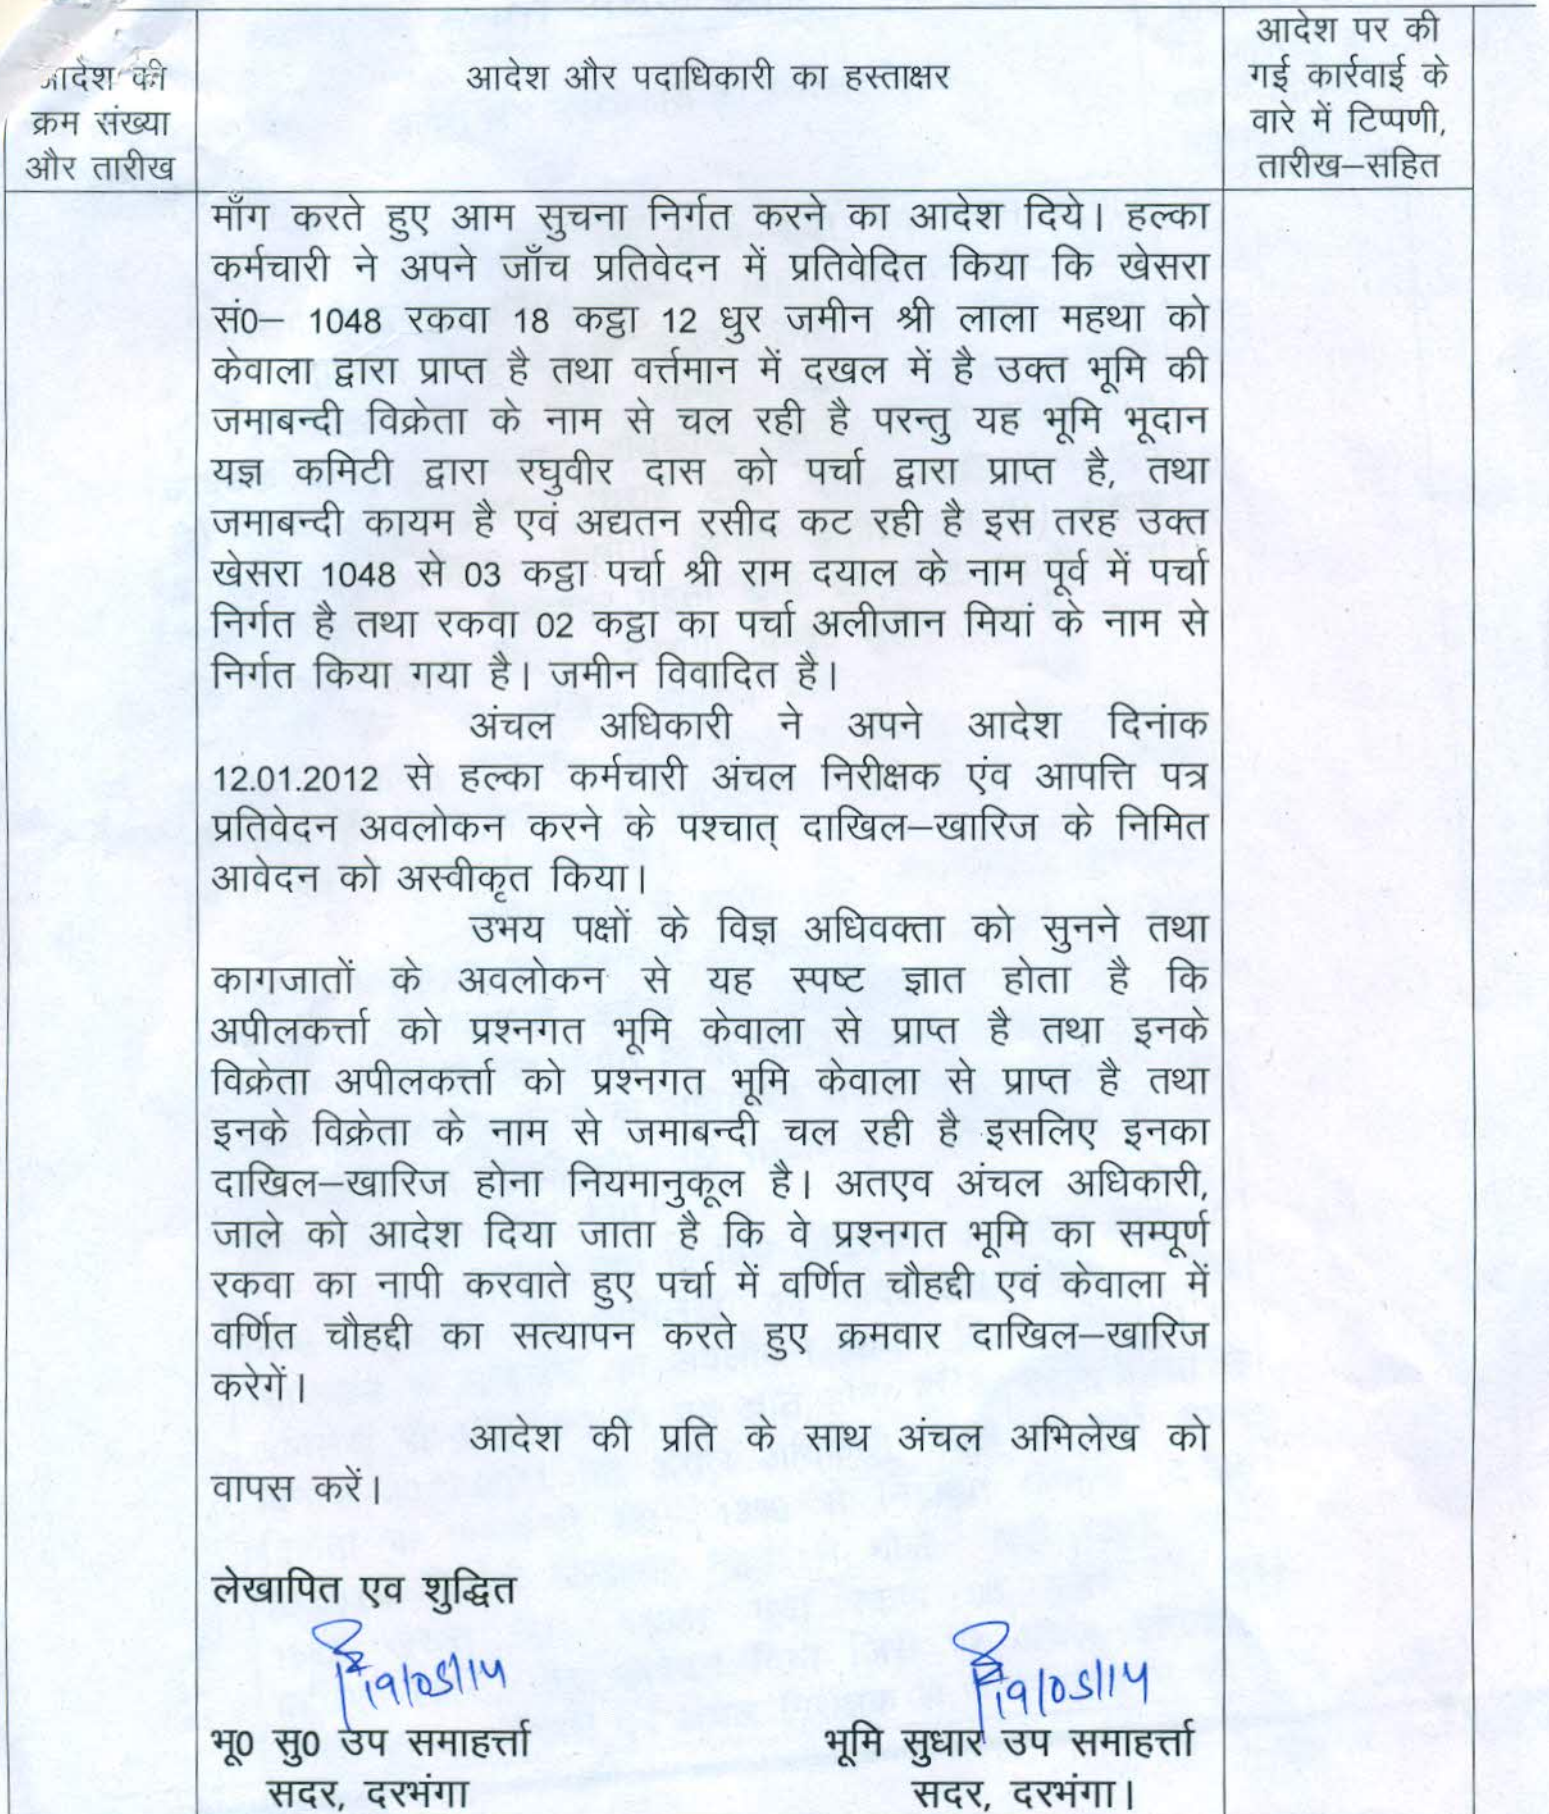 आदेश की
क्रम संख्या
और तारीख
आदेश और पदाधिकारी का हस्ताक्षर
आदेश पर की
गई कार्रवाई के
वारे में टिप्पणी,
तारीख–सहित
माँग करते हुए आम सुचना निर्गत करने का आदेश दिये। हल्का
कर्मचारी ने अपने जाँच प्रतिवेदन में प्रतिवेदित किया कि खेसरा
सं0– 1048 रकवा 18 कट्ठा 12 धुर जमीन श्री लाला महथा को
केवाला द्वारा प्राप्त है तथा वर्त्तमान में दखल में है उक्त भूमि की
जमाबन्दी विक्रेता के नाम से चल रही है परन्तु यह भूमि भूदान
यज्ञ कमिटी द्वारा रघुवीर दास को पर्चा द्वारा प्राप्त है, तथा
जमाबन्दी कायम है एवं अद्यतन रसीद कट रही है इस तरह उक्त
खेसरा 1048 से 03 कट्ठा पर्चा श्री राम दयाल के नाम पूर्व में पर्चा
निर्गत है तथा रकवा 02 कट्ठा का पर्चा अलीजान मियां के नाम से
निर्गत किया गया है। जमीन विवादित है।
अंचल अधिकारी ने अपने आदेश दिनांक
12.01.2012 से हल्का कर्मचारी अंचल निरीक्षक एंव आपत्ति पत्र
प्रतिवेदन अवलोकन करने के पश्चात् दाखिल–खारिज के निमित
आवेदन को अस्वीकृत किया।
उभय पक्षों के विज्ञ अधिवक्ता को सुनने तथा
कागजातों के अवलोकन से यह स्पष्ट ज्ञात होता है कि
अपीलकर्त्ता को प्रश्नगत भूमि केवाला से प्राप्त है तथा इनके
विक्रेता अपीलकर्त्ता को प्रश्नगत भूमि केवाला से प्राप्त है तथा
इनके विक्रेता के नाम से जमाबन्दी चल रही है इसलिए इनका
दाखिल–खारिज होना नियमानुकूल है। अतएव अंचल अधिकारी,
जाले को आदेश दिया जाता है कि वे प्रश्नगत भूमि का सम्पूर्ण
रकवा का नापी करवाते हुए पर्चा में वर्णित चौहद्दी एवं केवाला में
वर्णित चौहद्दी का सत्यापन करते हुए क्रमवार दाखिल–खारिज
करेगें।
आदेश की प्रति के साथ अंचल अभिलेख को
वापस करें।
लेखापित एव शुद्धित
19/05/14
19/05/14
भू0 सु0 उप समाहर्त्ता
भूमि सुधार उप समाहर्त्ता
सदर, दरभंगा
सदर, दरभंगा।